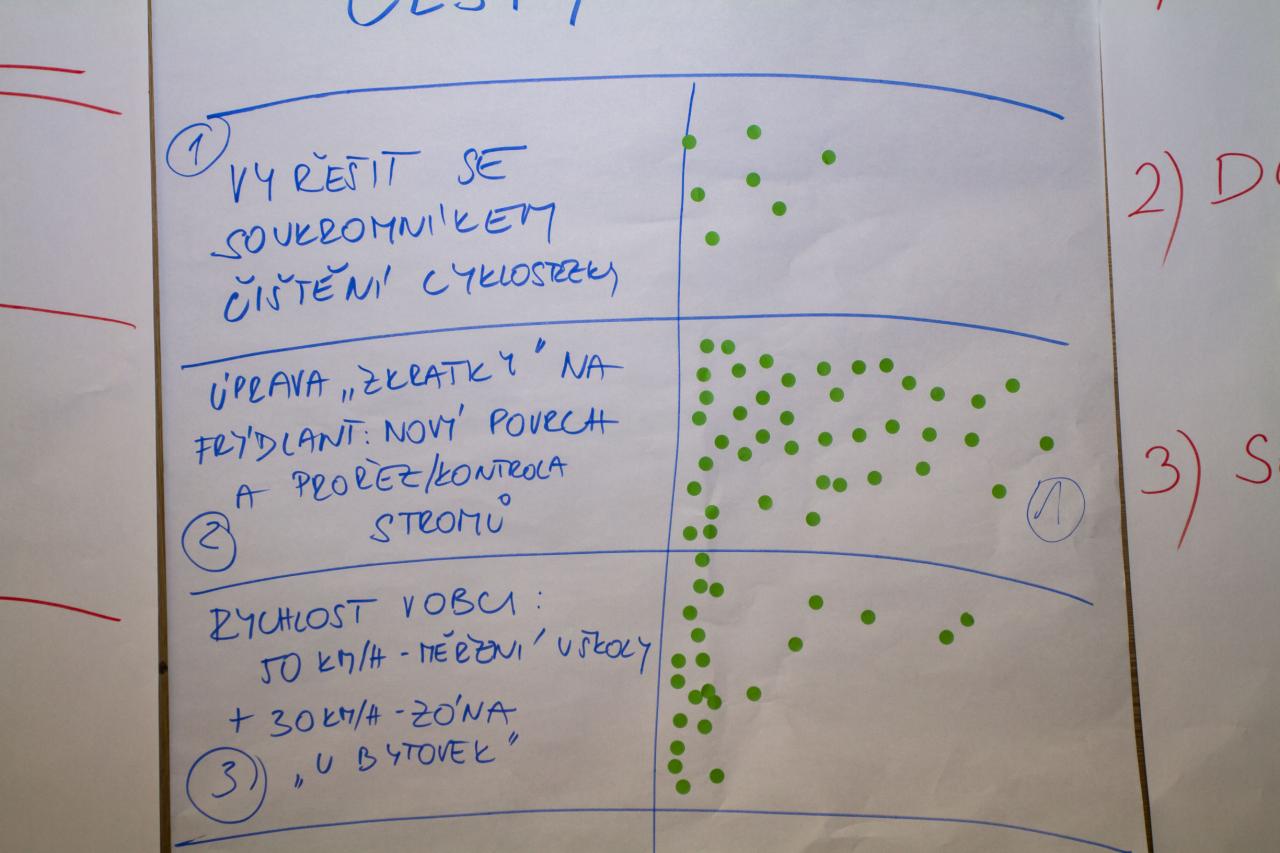 CESTY
1
VYŘEŠIT SE
SOUKROMNÍKEM
ČIŠTĚNÍ CYKLOSTEZKY
ÚPRAVA „ZKRATKY" NA
FRÝDLANT: NOVÝ POVRCH
A PROŘEZ/KONTROLA
STROMŮ
2
1
RYCHLOST V OBCI:
50 KM/H - MĚŘENÍ U ŠKOLY
+ 30 KM/H - ZÓNA
„U BYTOVEK"
3
2)
3)